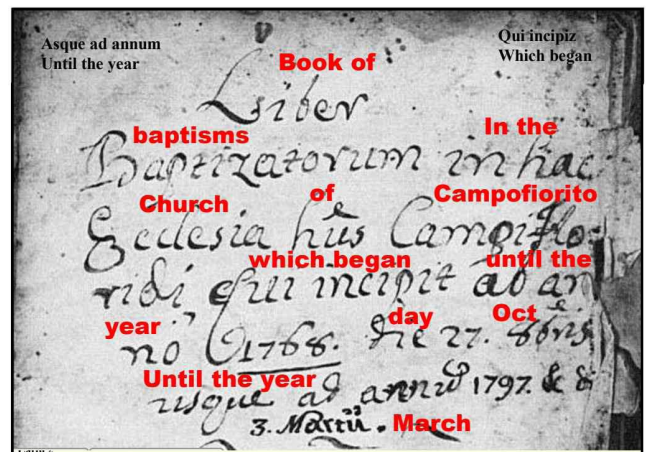 Asque ad annum
Until the year
Qui incipiz
Which began
Book of
Liber
baptisms
In the
Baptizatorum in hac
Church
of
Campofiorito
Ecclesia hu͠s Campiflo:
which began
until the
ridi qui incipit ab an
year
day
Oct
no 1768. die 27. 8bris
Until the year
usque ad annũ 1797. & di
3. Martii.
March